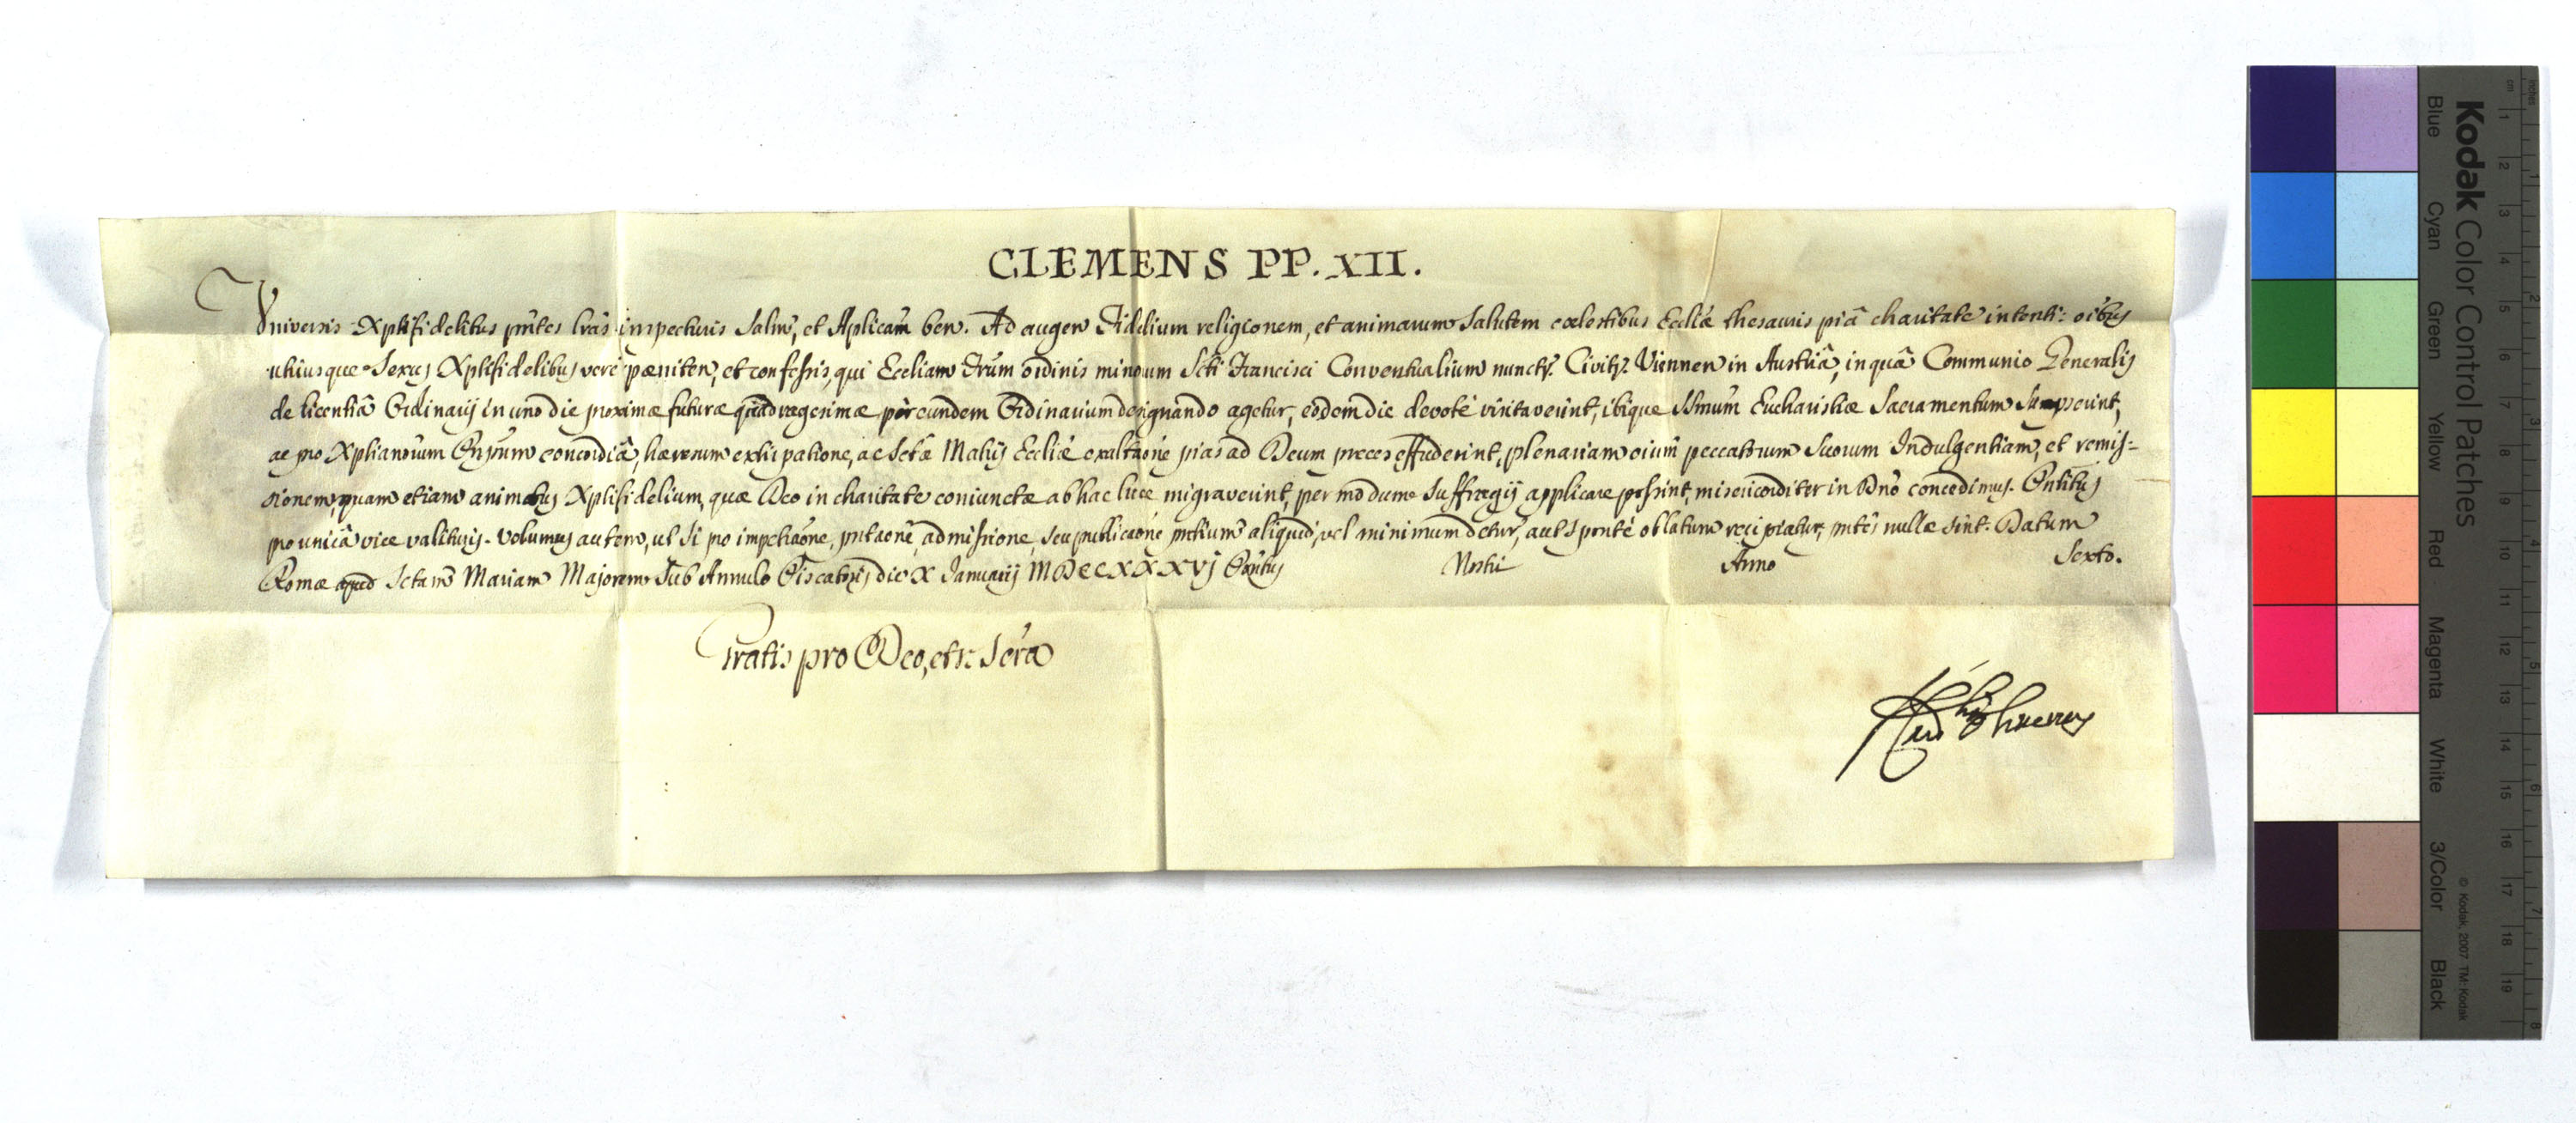 CLEMENS PP. XII.
Vniversis Xplifidelibus pntes lras inspecturis Salm̄, et Aplicam̄ ben. Ad augen Fidelium religionem, et animarum Salutem cœlestibus Ecclīæ thesauris piâ charitate intenti: oībus
utriusque Sexus Xplifidelibus verè pœniten, et confessis, qui Eccliam Frūm ordinis minorum Scti Francisci Conventualium Civitis Viennen in Austriâ, in quâ Communio Generalis
de licentiâ Ordinarij in uno die proximæ futuræ quadragesimæ per eundem Ordinarium designando agetur, eodem die devotè visitaverint, ibique SSmum Eucharistiæ Sacramentum Sumpserint,
ac pro Xplianorum Prpum concordiâ, hæresum extirpatione, ac Sctæ Matris Eccliæ exaltaōne pias ad Deum preces effuderint, plenariam oium peccatorum Suorum Indulgentiam, et remis-
sionem, quam etiam animabus Xplifidelium, quæ Deo in charitate coniunctæ ab hac luce migraverint, per modum Suffragij applicare possint, misericorditer in Dnō concedimus. Pntibus
pro unicâ vice valituris. Volumus autem, ut Si pro impetraōne, pntaōne, admissione, Seu publicaōne pntium aliquid, vel minimum detur, aut Sponte oblatum recipiatur, pntes nullæ Sint. Datum
Romæ apud Sctam Mariam Majorem Sub Annulo Piscatoris die X Januarij MDCCXXXVj Pontus Nostri Anno Sexto.
Gratis pro Deo, et Scra